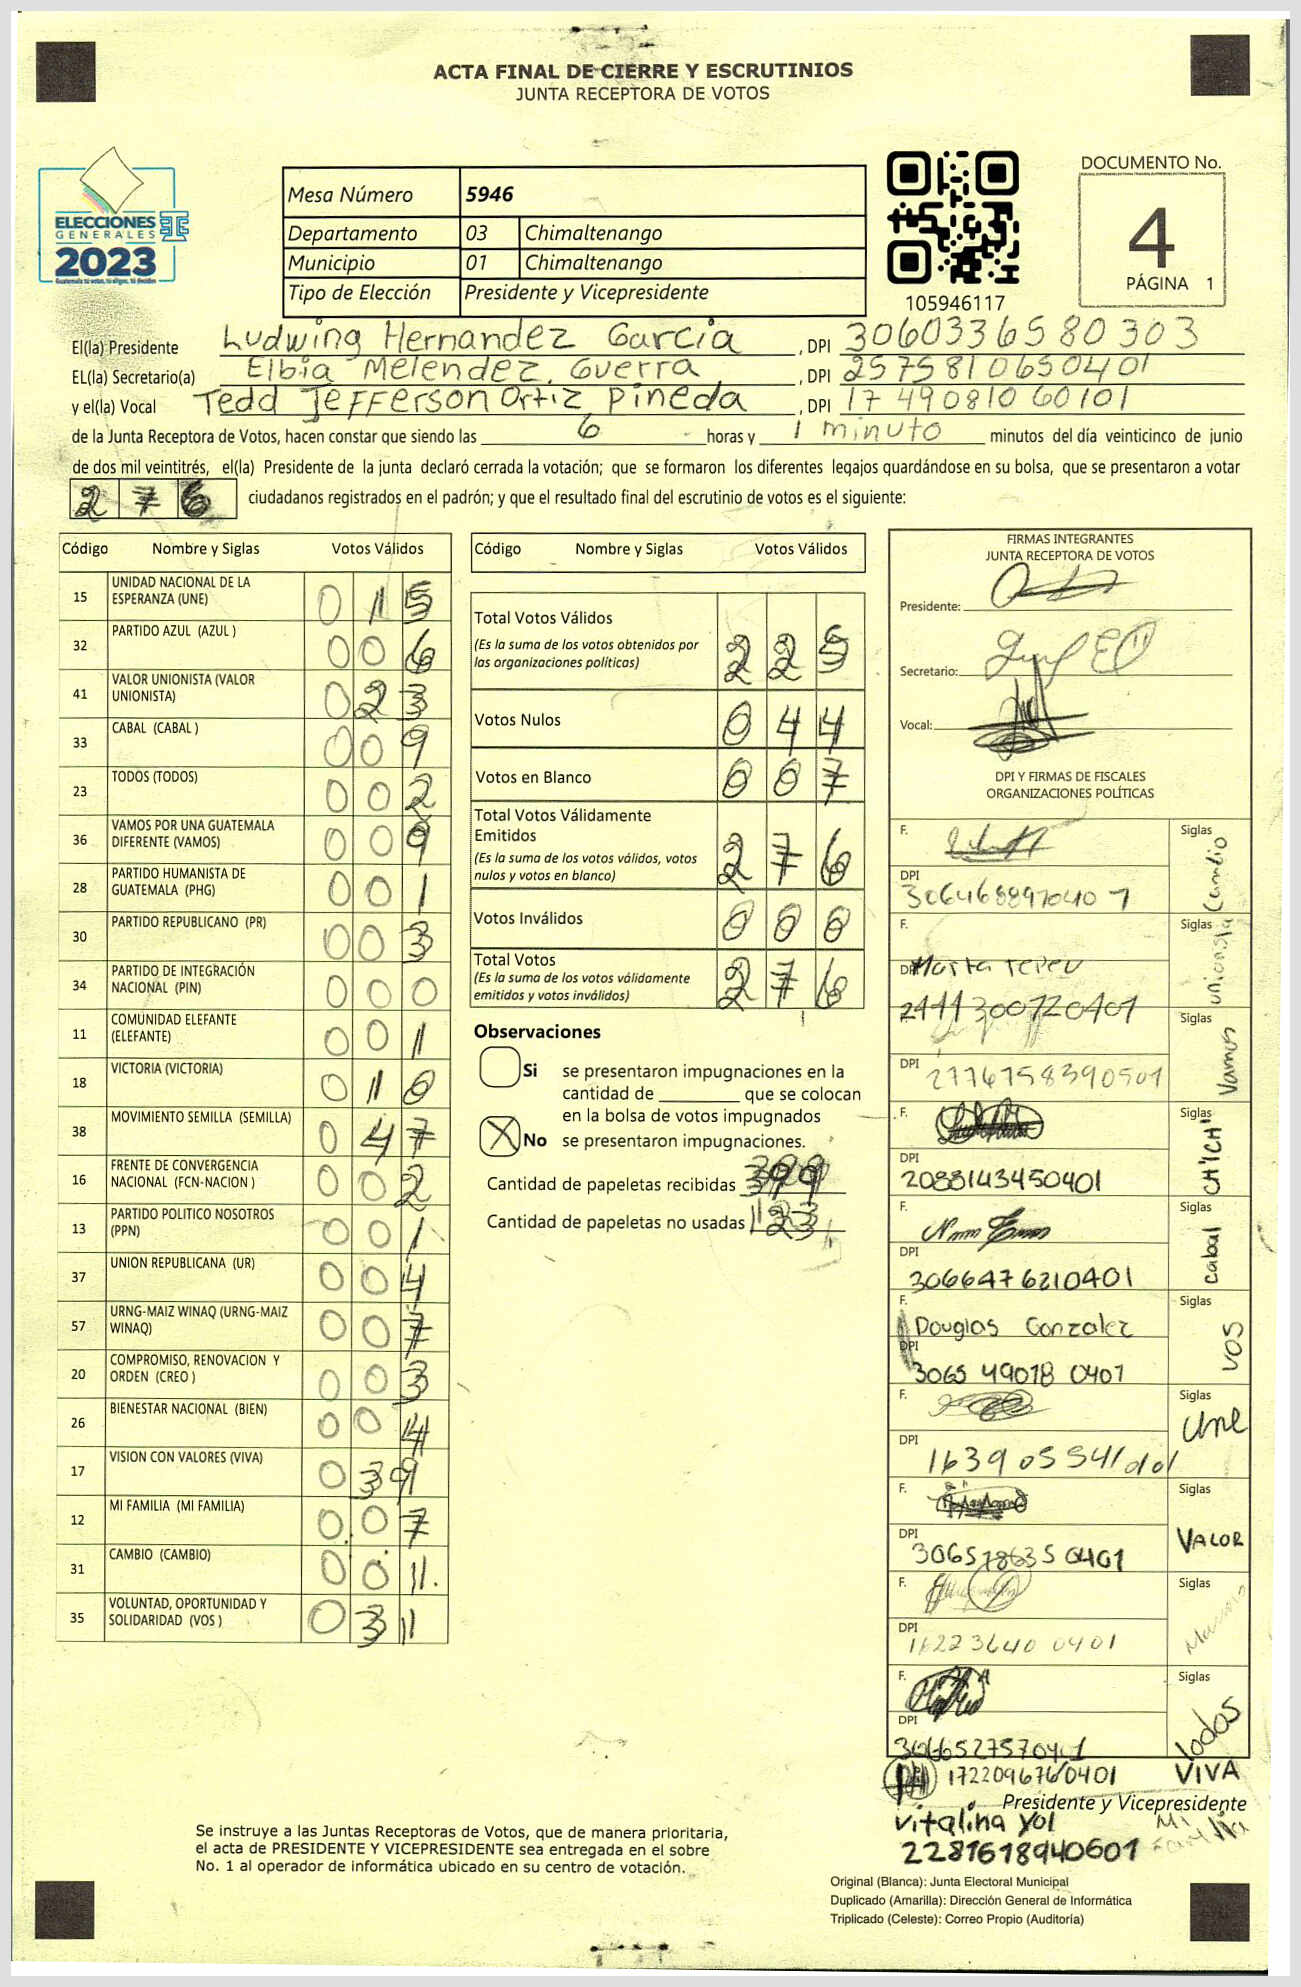 ACTA FINAL DE CIERRE Y ESCRUTINIOS
JUNTA RECEPTORA DE VOTOS
ELECCIONES
GENERALES
2023
Mesa Número 5946
Departamento 03 Chimaltenango
Municipio 01 Chimaltenango
Tipo de Elección Presidente y Vicepresidente
105946117
DOCUMENTO No.
4
PÁGINA 1
El(la) Presidente Ludwing Hernandez Garcia, DPI 3060336580303
EL(la) Secretario(a) Elbia Melendez Guerra, DPI 2575810650401
y el(la) Vocal Tedd Jefferson Ortiz Pineda, DPI 1749081060101
de la Junta Receptora de Votos, hacen constar que siendo las 6 horas y 1 minuto minutos del día veinticinco de junio
de dos mil veintitrés, el(la) Presidente de la junta declaró cerrada la votación; que se formaron los diferentes legajos quardándose en su bolsa, que se presentaron a votar
276 ciudadanos registrados en el padrón; y que el resultado final del escrutinio de votos es el siguiente:
Código Nombre y Siglas Votos Válidos
15 UNIDAD NACIONAL DE LA ESPERANZA (UNE) 015
32 PARTIDO AZUL (AZUL ) 006
41 VALOR UNIONISTA (VALOR UNIONISTA) 023
33 CABAL (CABAL ) 009
23 TODOS (TODOS) 002
36 VAMOS POR UNA GUATEMALA DIFERENTE (VAMOS) 009
28 PARTIDO HUMANISTA DE GUATEMALA (PHG) 001
30 PARTIDO REPUBLICANO (PR) 003
34 PARTIDO DE INTEGRACIÓN NACIONAL (PIN) 000
11 COMUNIDAD ELEFANTE (ELEFANTE) 001
18 VICTORIA (VICTORIA) 010
38 MOVIMIENTO SEMILLA (SEMILLA) 047
16 FRENTE DE CONVERGENCIA NACIONAL (FCN-NACION ) 002
13 PARTIDO POLITICO NOSOTROS (PPN) 001
37 UNION REPUBLICANA (UR) 004
57 URNG-MAIZ WINAQ (URNG-MAIZ WINAQ) 007
20 COMPROMISO, RENOVACION Y ORDEN (CREO ) 003
26 BIENESTAR NACIONAL (BIEN) 004
17 VISION CON VALORES (VIVA) 039
12 MI FAMILIA (MI FAMILIA) 007
31 CAMBIO (CAMBIO) 001
35 VOLUNTAD, OPORTUNIDAD Y SOLIDARIDAD (VOS ) 031
Código Nombre y Siglas Votos Válidos
Total Votos Válidos 225
(Es la suma de los votos obtenidos por
las organizaciones políticas)
Votos Nulos 044
Votos en Blanco 007
Total Votos Válidamente
Emitidos 276
(Es la suma de los votos válidos, votos
nulos y votos en blanco)
Votos Inválidos 000
Total Votos 276
(Es la suma de los votos válidamente
emitidos y votos inválidos)
Observaciones
Si se presentaron impugnaciones en la
cantidad de ________ que se colocan
en la bolsa de votos impugnados
X No se presentaron impugnaciones.
Cantidad de papeletas recibidas 399
Cantidad de papeletas no usadas 123
FIRMAS INTEGRANTES
JUNTA RECEPTORA DE VOTOS
Presidente:
Secretario:
Vocal:
DPI Y FIRMAS DE FISCALES
ORGANIZACIONES POLÍTICAS
F. Siglas Cambio
DPI
3064688970407
F. Siglas unionista
DPI Marta Tepeu
2444300720401
Siglas Vamos
DPI 2776758390501
F. Siglas CHICH'
DPI
2088143450401
F. Siglas Cabal
DPI
3066476210401
F. Siglas VOS
Douglas Gonzalez
DPI
3065 49078 0401
F. Siglas Une
DPI
F. Siglas VALOR
DPI
306578635 0401
F. Siglas
DPI
F. Siglas todos
DPI
3066527570401
1722096760401 VIVA
Presidente y Vicepresidente
Vitalina Yol Mi Familia
2281618940601
Se instruye a las Juntas Receptoras de Votos, que de manera prioritaria,
el acta de PRESIDENTE Y VICEPRESIDENTE sea entregada en el sobre
No. 1 al operador de informática ubicado en su centro de votación.
Original (Blanca): Junta Electoral Municipal
Duplicado (Amarilla): Dirección General de Informática
Triplicado (Celeste): Correo Propio (Auditoría)